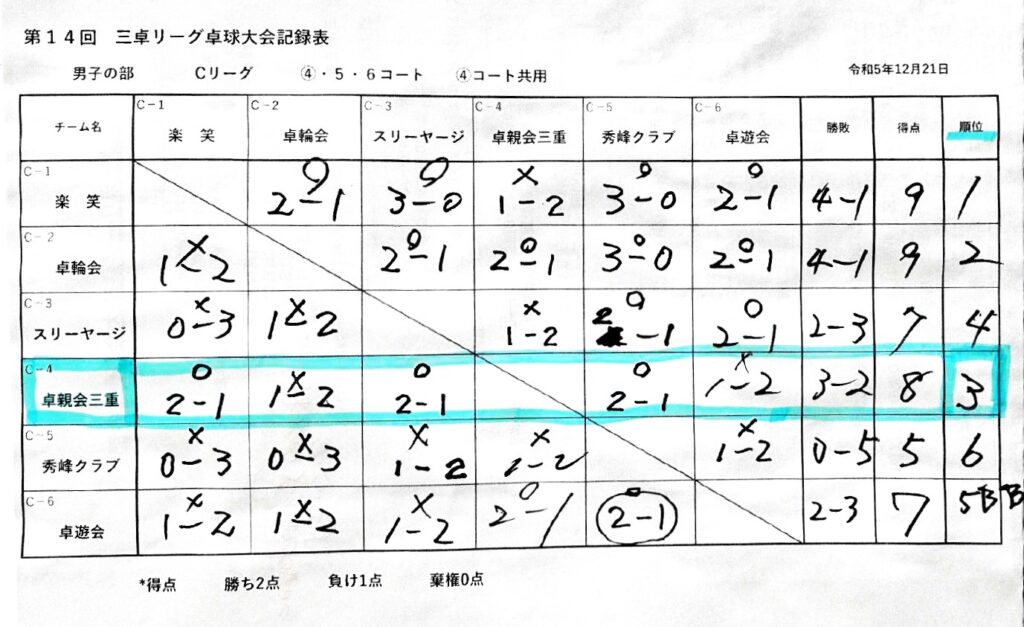 第14回 三卓リーグ卓球大会記録表
男子の部 Cリーグ ④・5・6コート ④コート共用 令和5年12月21日
チーム名 C-1 楽 笑 C-2 卓輪会 C-3 スリーヤージ C-4 卓親会三重 C-5 秀峰クラブ C-6 卓遊会 勝敗 得点 順位
C-1 楽 笑 ○ 2-1 ○ 3-0 × 1-2 ○ 3-0 ○ 2-1 4-1 9 1
C-2 卓輪会 × 1-2 ○ 2-1 ○ 2-1 ○ 3-0 ○ 2-1 4-1 9 2
C-3 スリーヤージ × 0-3 × 1-2 × 1-2 ○ 2-1 ○ 2-1 2-3 7 4
C-4 卓親会三重 ○ 2-1 × 1-2 ○ 2-1 ○ 2-1 × 1-2 3-2 8 3
C-5 秀峰クラブ × 0-3 × 0-3 × 1-2 × 1-2 × 1-2 0-5 5 6
C-6 卓遊会 × 1-2 × 1-2 × 1-2 ○ 2-1 ○ 2-1 2-3 7 5
*得点 勝ち2点 負け1点 棄権0点